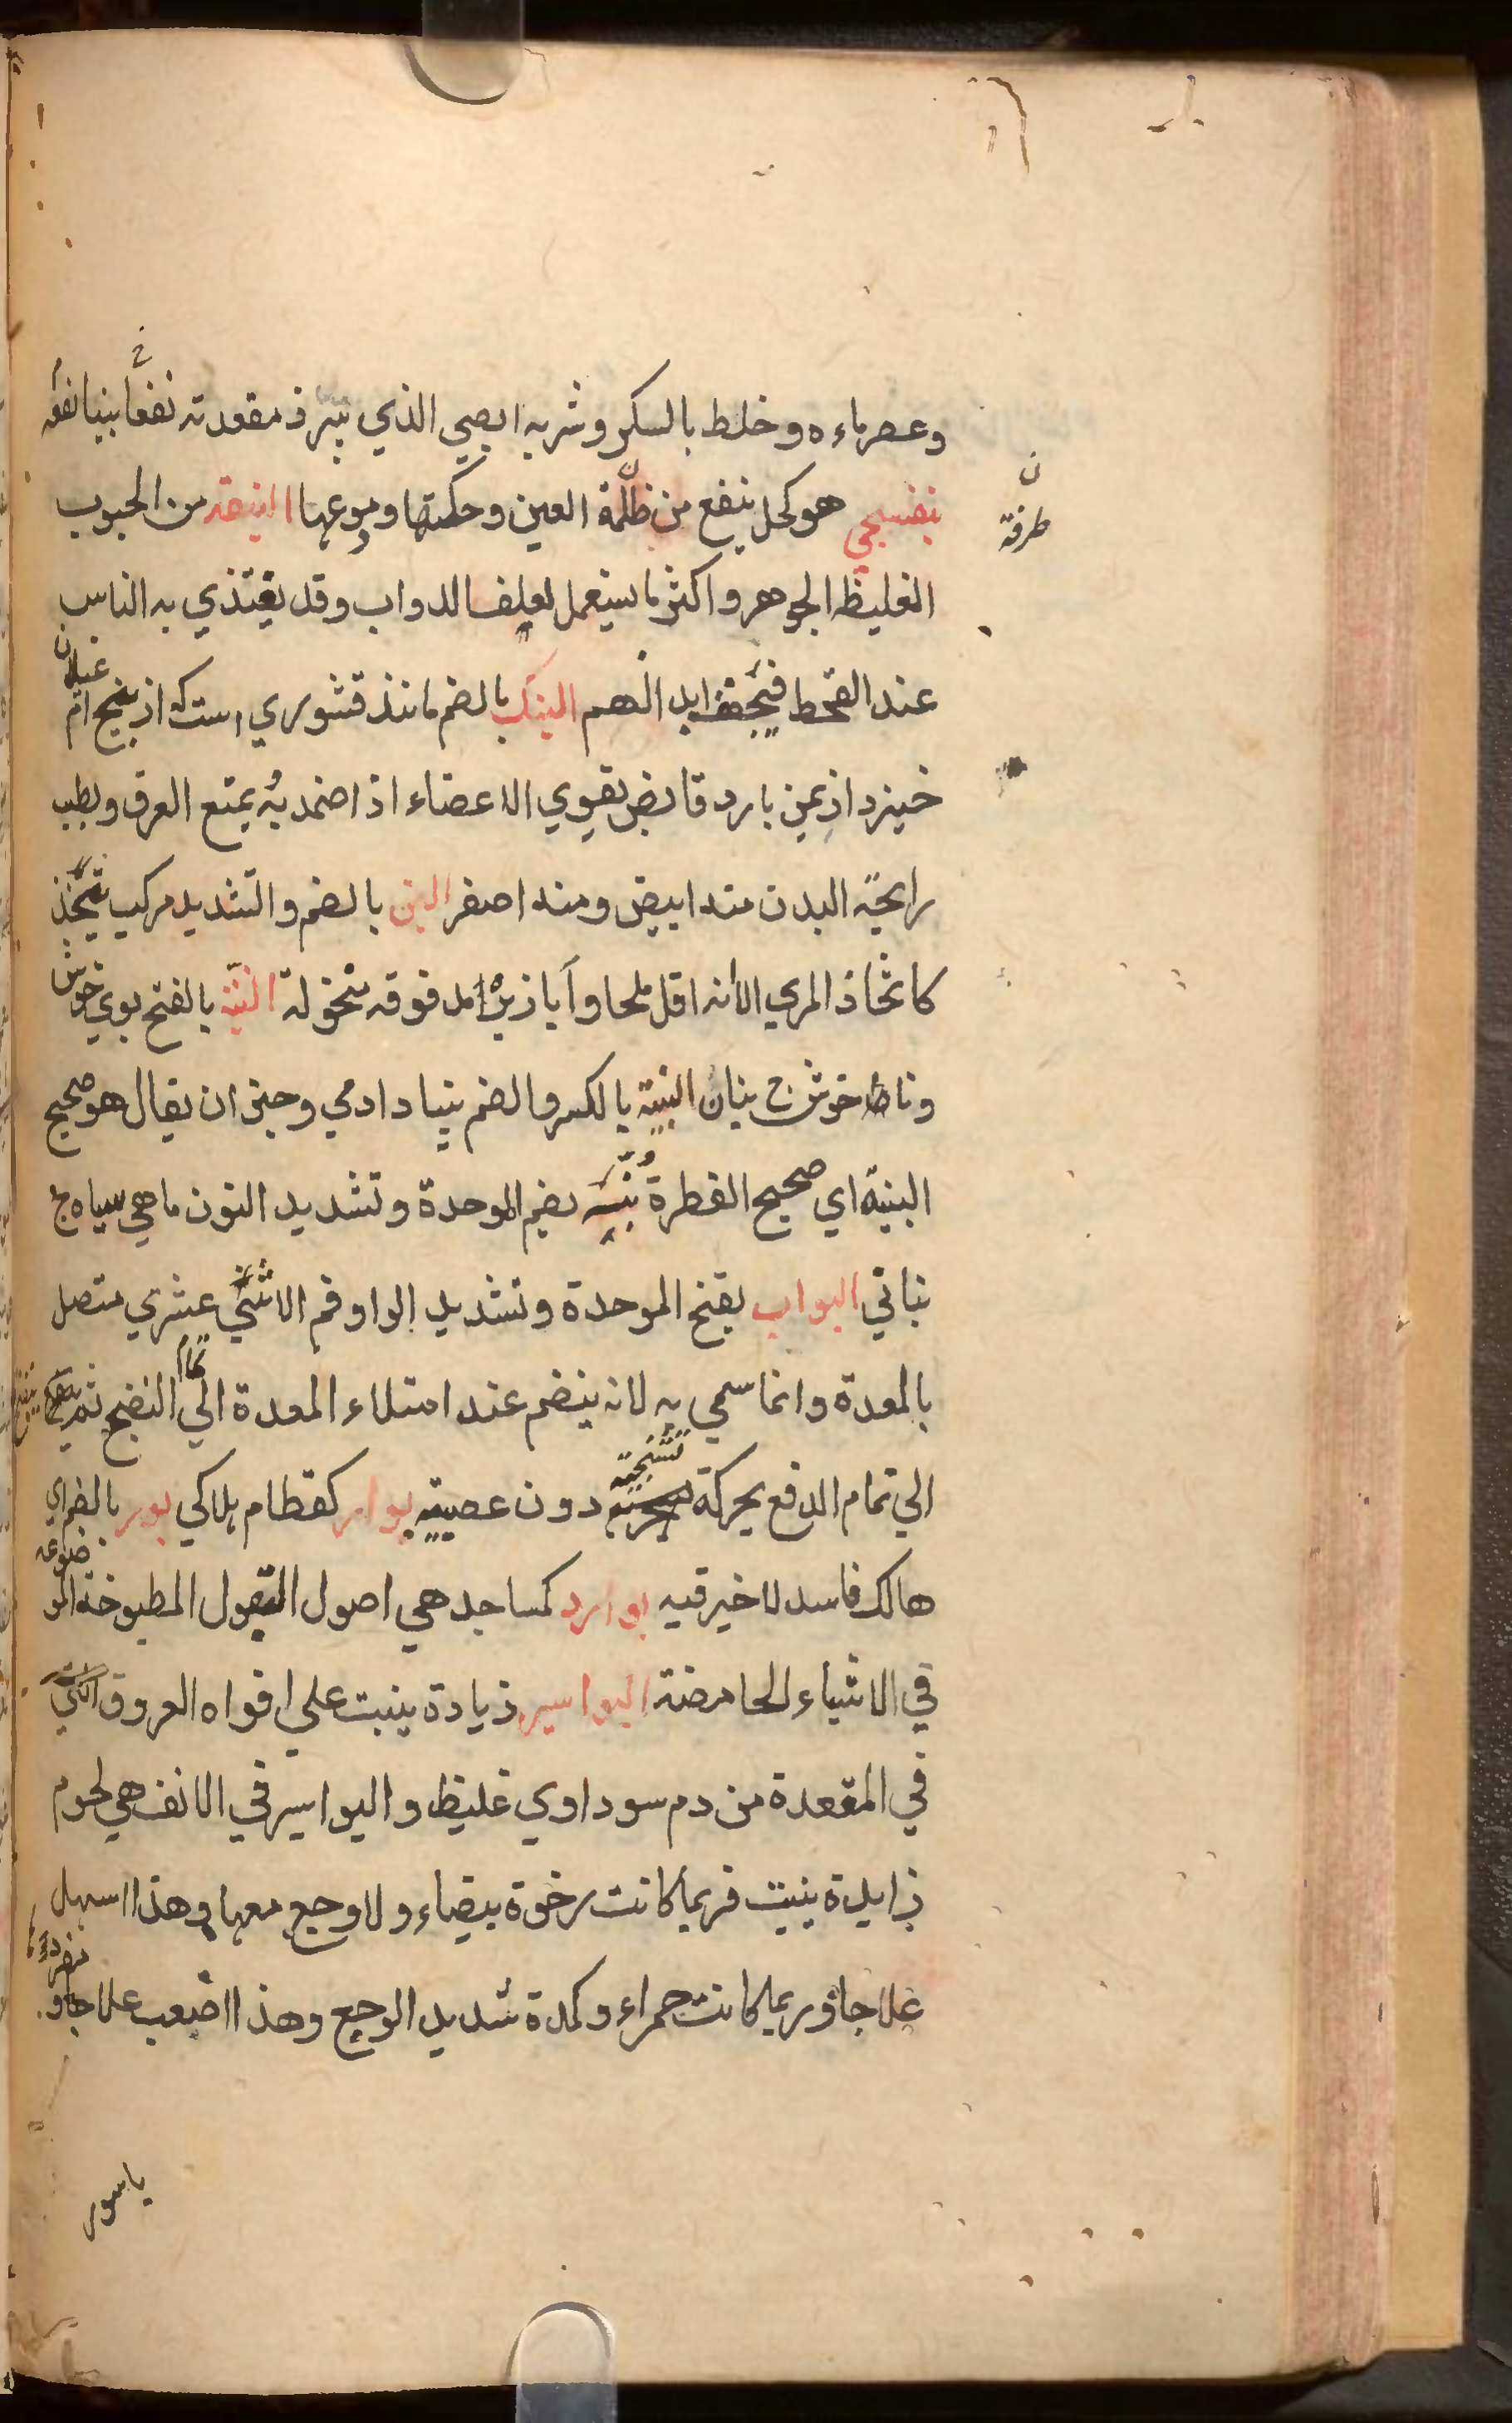 وعصر ماءه وخلط بالسكر وشربه الصبي الذي تبرز مقعدته نفعا بينا نفعه
بنفسجي هو كحل ينفع من ظلمة العين وحكتها ودموعها النبقه من الحبوب
ن
طرفة
الغليظه الجوهر واكثر ما يستعمل لعلف الدواب وقد يغتذي به الناس
عند القحط فيجفف ابدانهم البنك بالضم مانند قشوري است كه از بيخ ام غيلان
خيزد از يمن بارد قابض يقوي الاعضاء اذا ضمد به يمنع العرق ويطيب
رايحة البدن منه ابيض ومنه اصفر البن بالضم والتشديد مركب يتخذ
كاتخاذ المري الا انه اقل ملحا و ابازيره مدقوقه منخولة البنة بالفتح بوي خوش
وناخوش ج بنان البنية بالكسر والضم بنياد ادمي وجيز ان يقال هو صحيح
البنية اي صحيح الفطرة بني بضم الموحدة وتشديد النون ماهي سياه ج
بناتي البواب بفتح الموحدة وتشديد الواو فم الاثني عشري متصل
بالمعدة وانما سمي به لانه ينضم عند امتلاء المعدة الي تمام النضج ثم ينفتح
الي تمام الدفع بحركة تشنجية دون عصبية بوار كقطام هلاكي بور بالضم اي
هالك فاسد لا خير فيه بوارد كمساجد هي اصول البقول المطبوخة الموضوعه
في الاشياء الحامضة البواسير زيادة ينبت علي افواه العروق التي
في المقعدة من دم سوداوي غليظ والبواسير في الانف هي لحوم
زايدة ينبت فربما كانت رخوة بيضاء ولا وجع معها وهذا اسهل
علاجا وربما كانت حمراء وكمدة شديد الوجع وهذا اصعب علاجا و
باسور